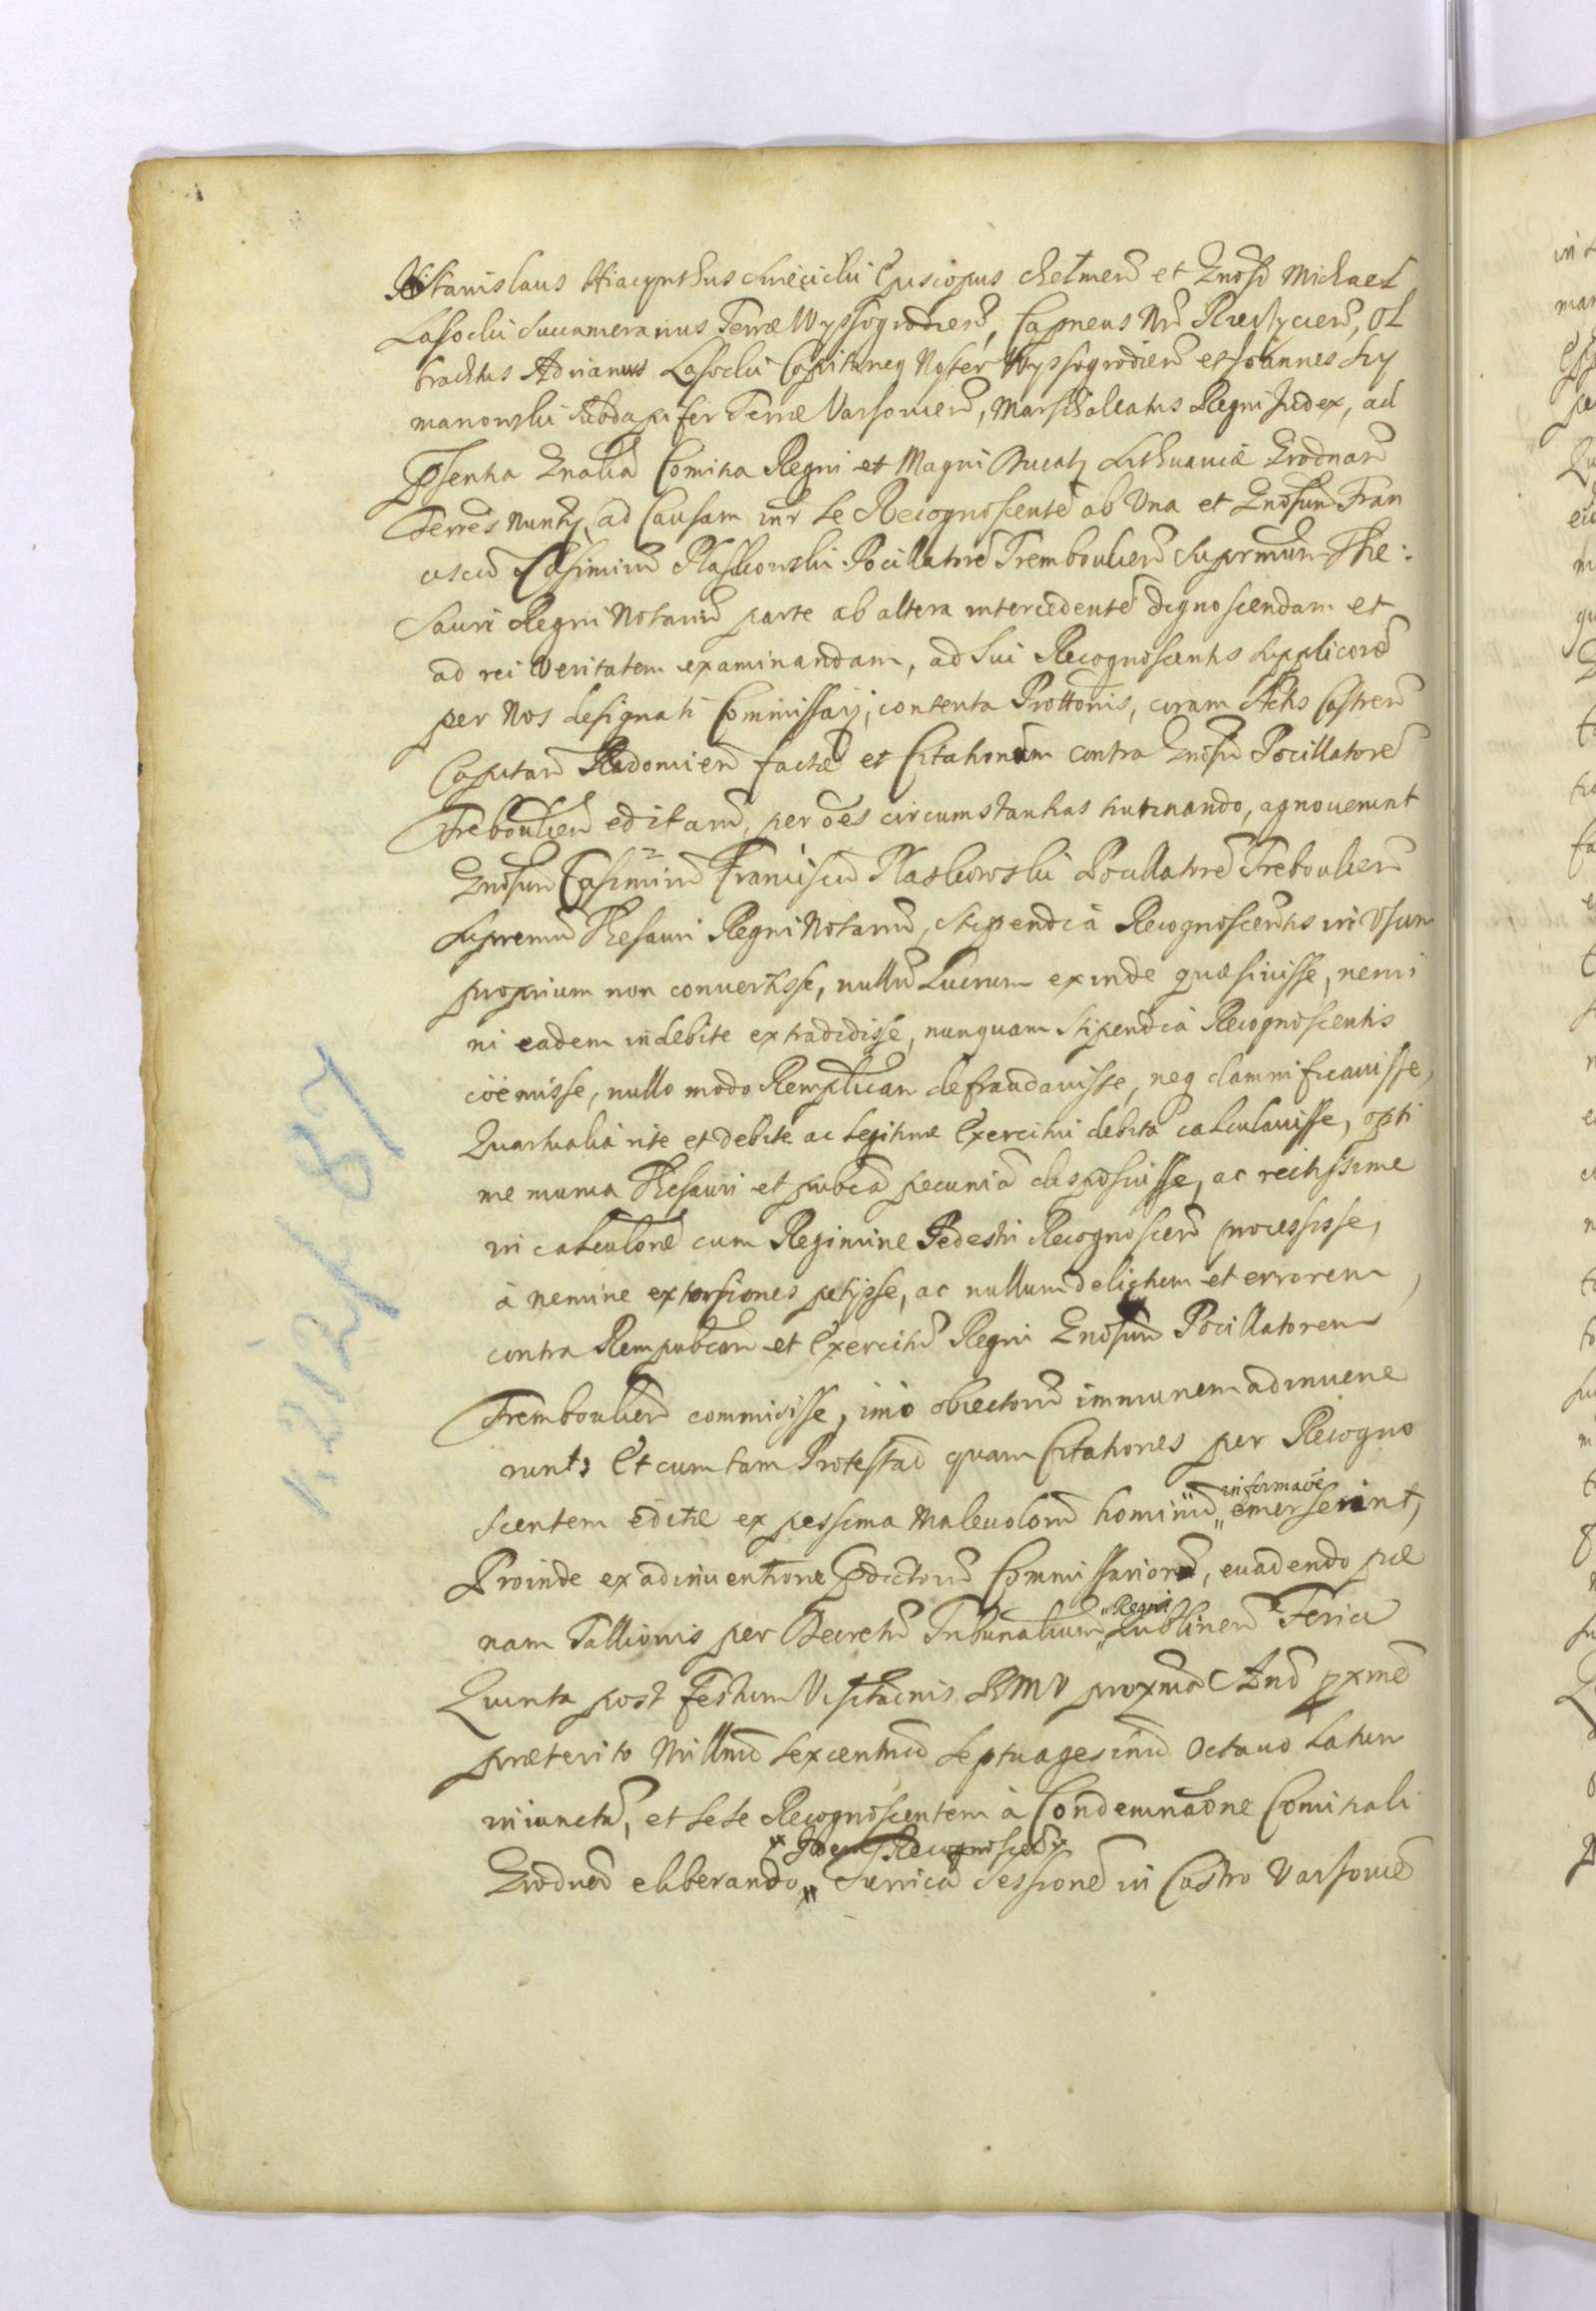 Stanislaus Hiacynthus Swięcicki Episcopus Chełmen̄ et Gnos̄ Michael
Lasocki Succamerarius Terræ Wyssogrodien̄, Capneus Nr̄ , Ol
brachtus Adrianus Lasocki Capitaneq Noster Wyssogrodien̄ et Joannes Szy
manowski Subdapifer Terræ Varsovien̄, Marschalcatus Regni Judex, ad
Psentia Gnalia Comitia Regni et Magni Ducatq Lithuaniæ Grodnæ
Terres Nuntÿ, ad Causam intr se Recognoscente ab Una et Gnosum Fran
ciscū Casimirū Płaskowski Pocillatorē Tremboulien̄ Supremum The:
sauri Regni Notariū parte ab altera intercedentē dignoscendam et
ad rei veritatem examinandam, ad Sui Recognoscentis supplicōe
per Nos designati Commissarij, contenta Prottōnis, coram Actis Castren̄
Capitan̄ Radomien̄ factæ et Citationum contra Gnōsū Pocillatorē
Treboulien̄ editarū, per ōes circumstantias trutinando, agnoverunt
Gnosum Casimirū Franciscū Płaskowski Pocillatorē Treboulien̄
Supremū Thesauri Regni Notariū, Stipendia Recognoscentis in Usum
proprium non convertisse, nullū Lucrum exinde quæsivisse, nemi
ni eadem indebite extradidisse, nunquam Stipendia Recognoscentis
cöemisse, nullo modo Remplicam defraudavisse, neq damnificavisse,
Quartualia rite et debite ac legitime Exercitui debita calculavisse, opti
me munia Thesauri et publicā pecuniā disposuisse, ac rectissime
in calculōne cum Regimine Pedestri Recognoscen̄ processisse,
à nemine extorsiones petijsse, ac nullum delictum et errorem,
contra Rempublcam et Exercitū Regni Gnosum Pocillatorem
Tremboulien̄ commisisse, imò obiectorū immunem adinvene
runt; Et cum tam Protestaō quam Citationes per Recogno
scentem editæ ex pessima Malevolorū hominū " informaōe " emerserint,
Proinde ex adinventione Pdictorū Commissariorū, evadendo pæ
nam Tallionis per Decretū Tribunalium " Regni " Lublinen̄ Feria
Quinta post Festum Visitaōnis BMV proxima Anō pxmē
præterito Millmō sexcentmō septuagesimō octavo Latum
iniunctā, et sese Recognoscentem à Condemnaōne Comitiali
Grodnen̄ eliberando, Idem Recognoscen̄ Turricā Sessionē in Castro Varsovien̄